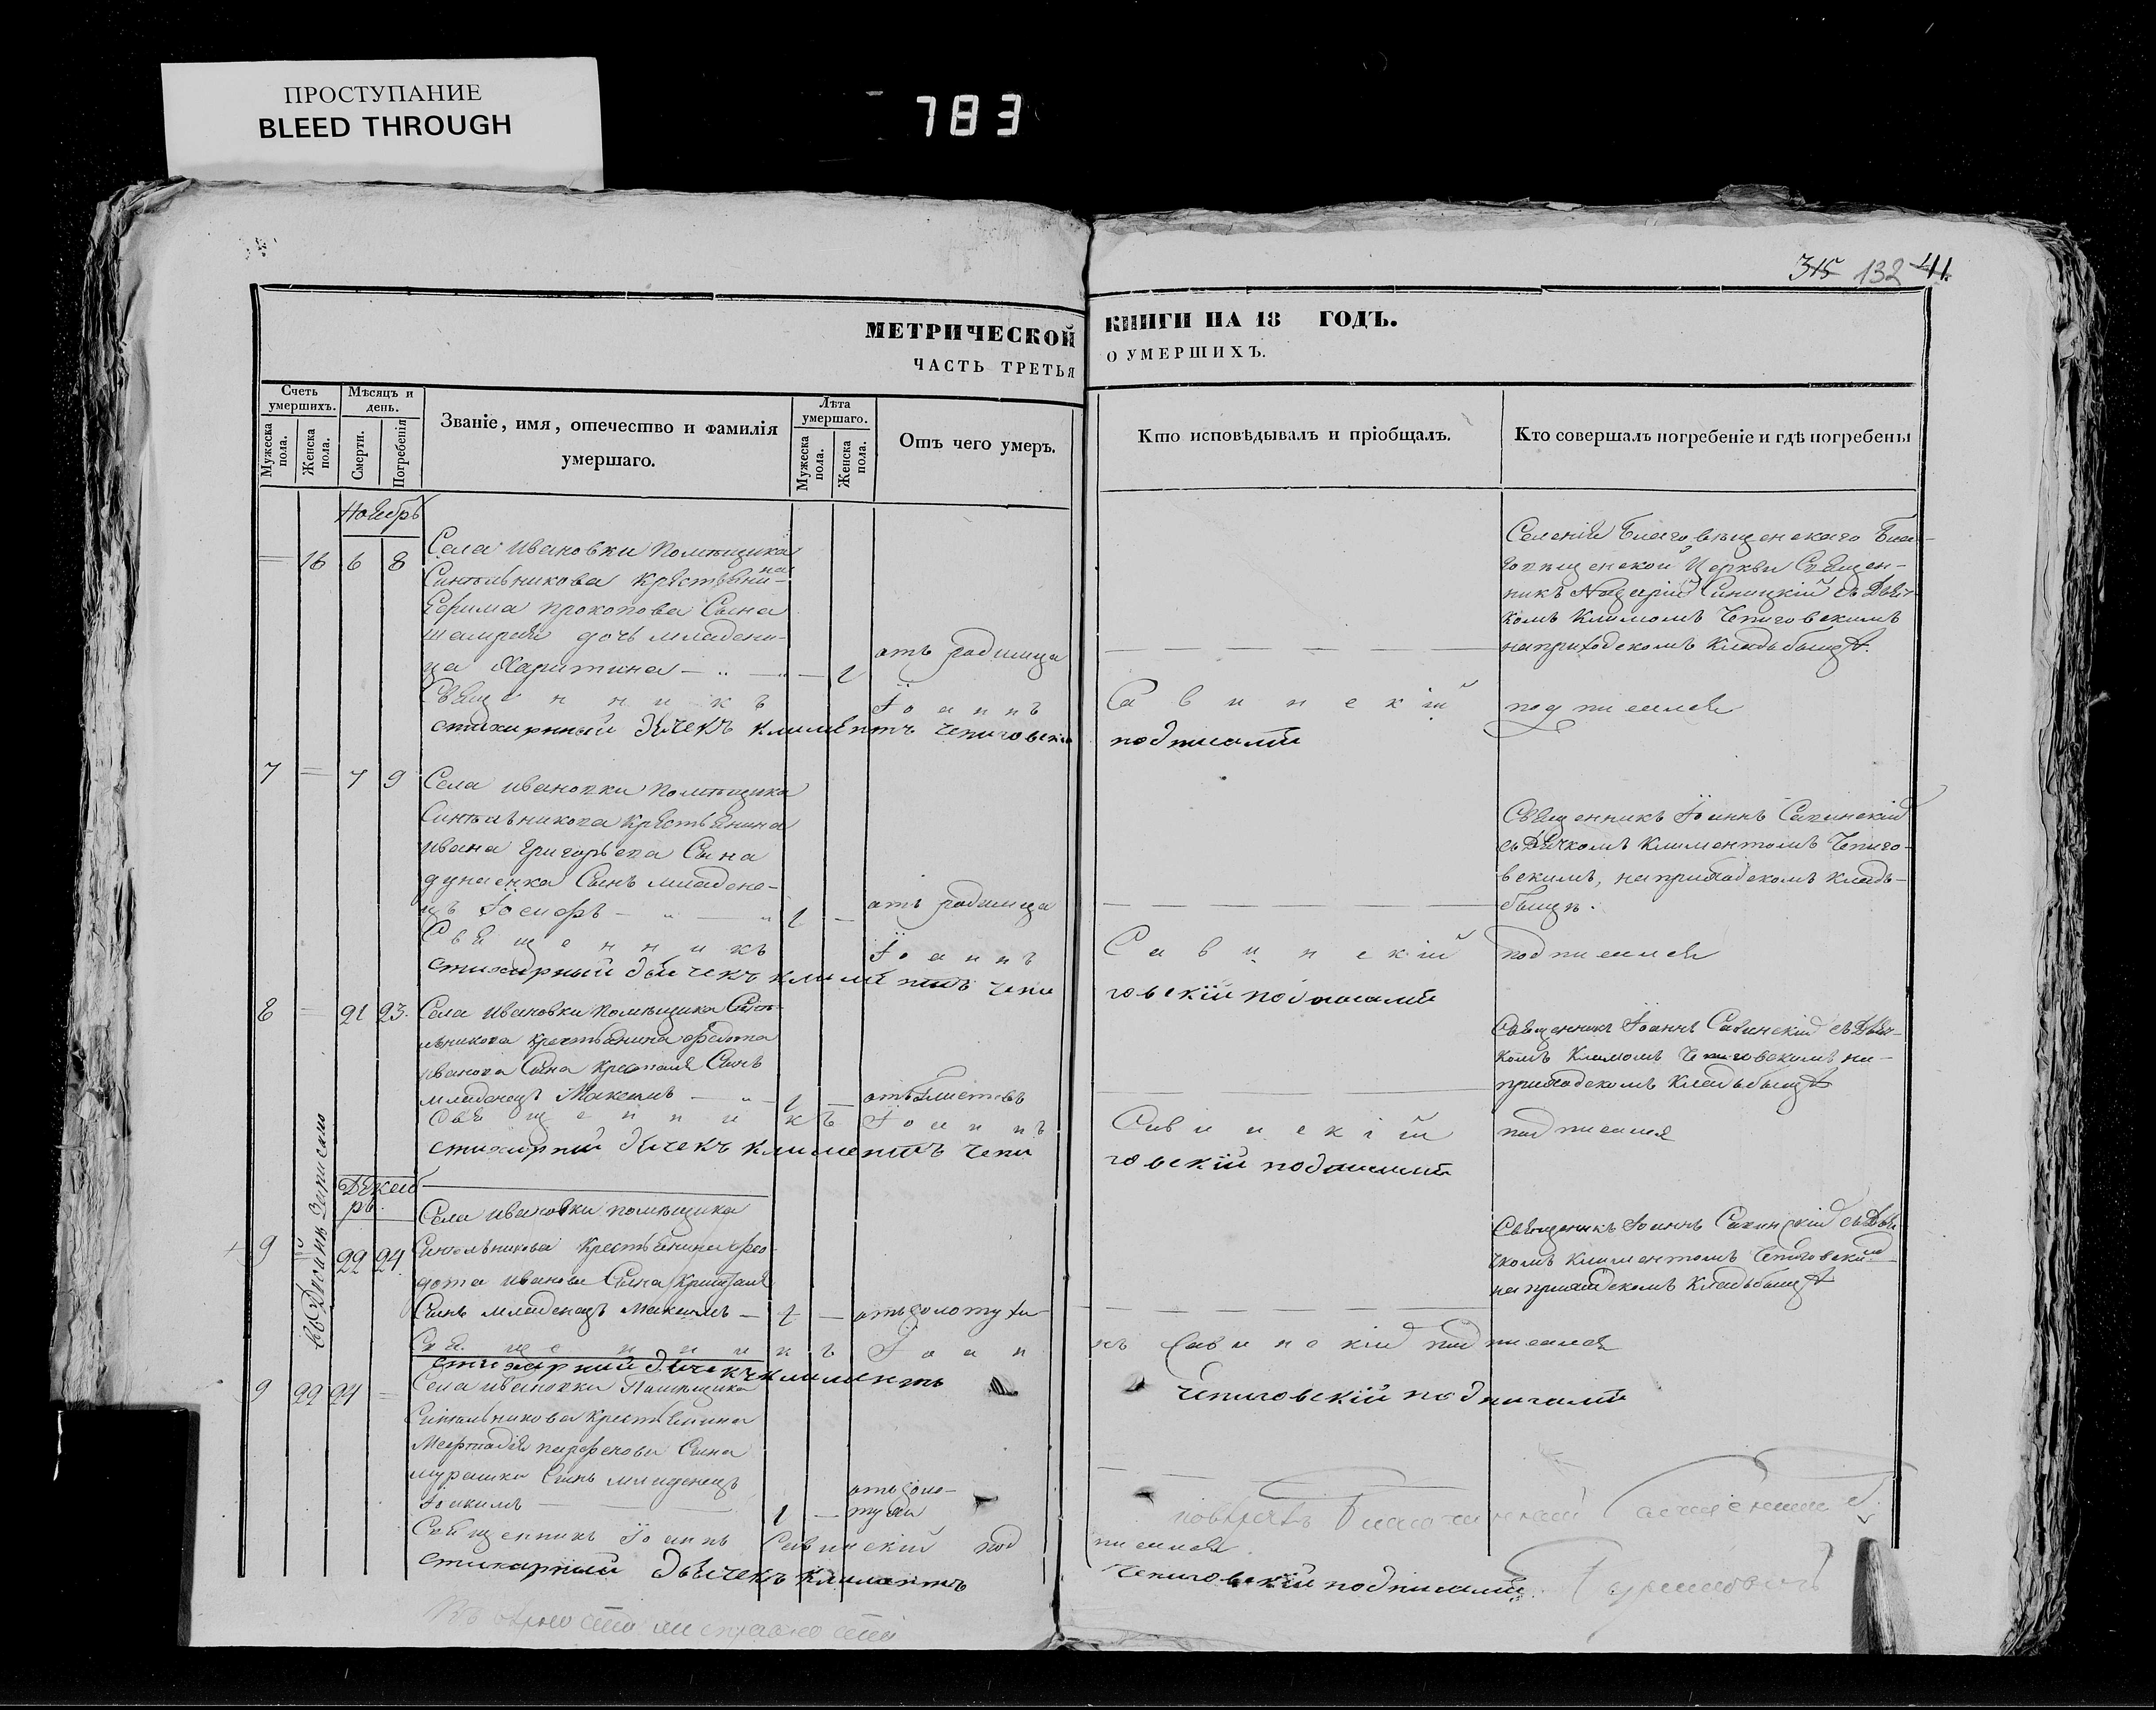 ПРОСТУПАНИЕ
BLEED THROUGH
783
315 132 41
МЕТРИЧЕСКОЙ КНИГИ НА 18 ГОДЪ.
ЧАСТЬ ТРЕТЬЯ О УМЕРШИХЪ.
Счетъ умершихъ.
Мужеска пола.
Женска пола.
Мѣсяцъ и день.
Смерти.
Погребенія
Званіе, имя, отечество и фамилія
умершаго.
Лѣта умершаго.
Мужеска пола.
Женска пола.
Отъ чего умеръ.
Кто исповѣдывалъ и пріобщалъ.
Кто совершалъ погребеніе и гдѣ погребены
Ноябрь
16 6 8
Села Ивановки Помѣщика
Синельникова Крестьянина
Ефима Прокопова Сына
дочь младени-
ца Харитина 1
отъ родимца
Селенія Благовѣщенскаго Благо-
вѣщенской Церкви Священ-
никъ Синицкій съ Дьяч-
комъ Климомъ Чепиговскимъ
на приходскомъ Кладбищѣ.
Священникъ Іоаннъ Савинскій подписался
стихирный дьячекъ Климентъ Чепиговскій подписалъ
7 7 9
Села Ивановки Помѣщика
Синельникова Крестьянина
Ивана Григорьева Сына
Дунаенка Сынъ младене-
цъ Іосифъ 1
отъ родимца
Священникъ Іоаннъ Савинскій
съ Дьячкомъ Климентомъ Чепиго-
вскимъ, на приходскомъ клад-
бищѣ.
Священникъ Іоаннъ Савинскій подписался
стихарный дьячекъ Климентъ Чепиговскій подписалъ
8 21 23.
Села Ивановки Помѣщика Сине-
льникова Крестьянина Федота
Иванова Сына Сынъ
младенецъ Максимъ 1
отъ глистовъ
Священникъ Іоаннъ Савинскій съ Дьяч-
комъ Климомъ Чепиговскимъ на
приходскомъ Кладбищѣ
Священникъ Іоаннъ Савинскій подписался
стихарный дьячекъ Климентъ Чепиговскій подписалъ
Декаб
рь.
9 22 24.
Села Ивановки помѣщика
Синельникова Крестьянина Фео-
дота Иванова Сына
Сынъ младенецъ Максимъ 1
отъ золотухи
Священникъ Іоаннъ Савинскій съ Дья-
чкомъ Климентомъ Чепиговскимъ
на приходскомъ Кладбищѣ
Священникъ Іоаннъ Савинскій подписался
стихарный дьячекъ Климентъ Чепиговскій подписалъ
9 22 24
Села Ивановки Помѣщика
Синельникова Крестьянина
Парфенова Сына
Сынъ младенецъ
Іоакимъ 1
отъ золо-
тухи
Священникъ Іоаннъ Савинскій подписался
стихарный дьячекъ Климентъ Чепиговскій подписалъ